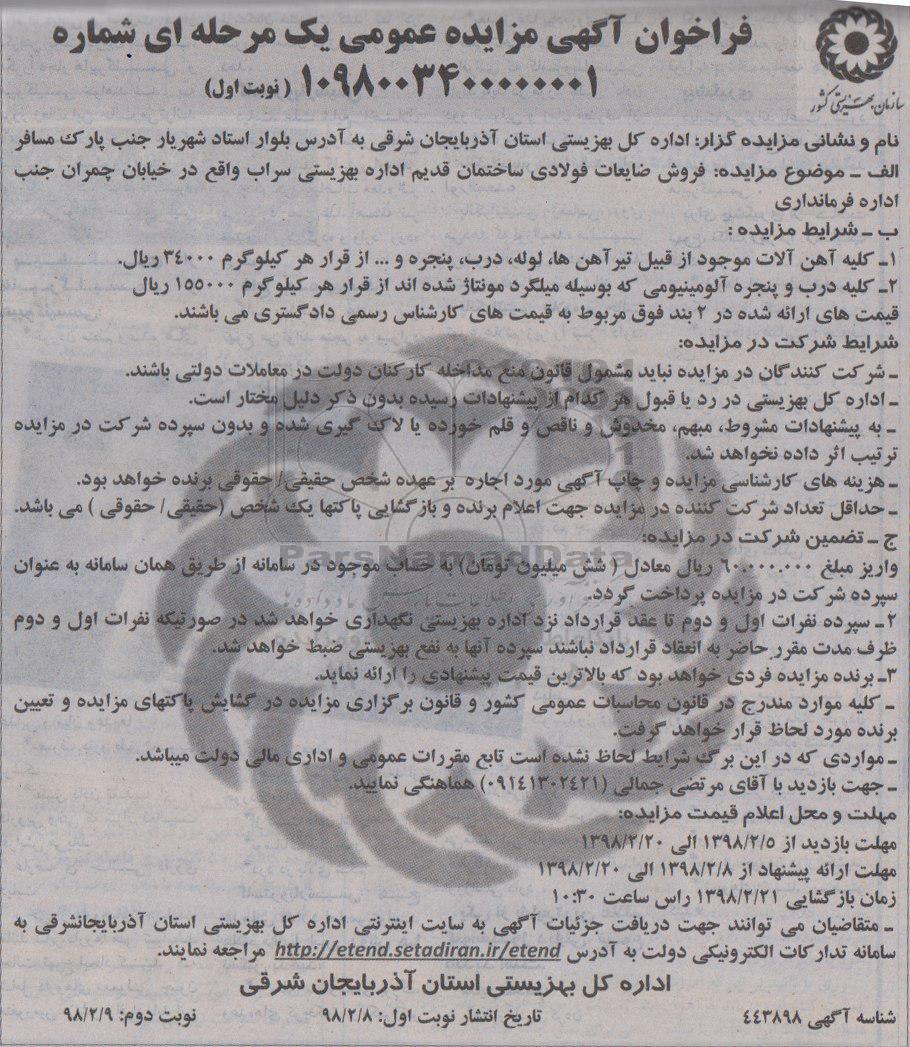 فراخوان آگهی مزایده عمومی یک مرحله ای شماره
۱۰۹۸۰۰۳۴۰۰۰۰۰۰۰۱ ( نوبت اول)
سازمان بهزیستی کشور
نام و نشانی مزایده گزار: اداره کل بهزیستی استان آذربایجان شرقی به آدرس بلوار استاد شهریار جنب پارک مسافر
الف ـ موضوع مزایده: فروش ضایعات فولادی ساختمان قدیم اداره بهزیستی سراب واقع در خیابان چمران جنب
اداره فرمانداری
ب ـ شرایط مزایده :
۱ـ کلیه آهن آلات موجود از قبیل تیرآهن ها، لوله، درب، پنجره و ... از قرار هر کیلوگرم ۳۴۰۰۰ ریال.
۲ـ کلیه درب و پنجره آلومینیومی که بوسیله میلگرد مونتاژ شده اند از قرار هر کیلوگرم ۱۵۵۰۰۰ ریال
قیمت های ارائه شده در ۲ بند فوق مربوط به قیمت های کارشناس رسمی دادگستری می باشند.
شرایط شرکت در مزایده:
ـ شرکت کنندگان در مزایده نباید مشمول قانون منع مداخله کارکنان دولت در معاملات دولتی باشند.
ـ اداره کل بهزیستی در رد یا قبول هر کدام از پیشنهادات رسیده بدون ذکر دلیل مختار است.
ـ به پیشنهادات مشروط، مبهم، مخدوش و ناقص و قلم خورده یا لاک گیری شده و بدون سپرده شرکت در مزایده
ترتیب اثر داده نخواهد شد.
ـ هزینه های کارشناسی مزایده و چاپ آگهی مورد اجاره بر عهده شخص حقیقی/ حقوقی برنده خواهد بود.
ـ حداقل تعداد شرکت کننده در مزایده جهت اعلام برنده و بازگشایی پاکتها یک شخص (حقیقی/ حقوقی ) می باشد.
ج ـ تضمین شرکت در مزایده:
ParsNamadData
واریز مبلغ ۶۰.۰۰۰.۰۰۰ ریال معادل ( شش میلیون تومان) به حساب موجود در سامانه از طریق همان سامانه به عنوان
سپرده شرکت در مزایده پرداخت گردد.
۲ـ سپرده نفرات اول و دوم تا عقد قرارداد نزد اداره بهزیستی نگهداری خواهد شد در صورتیکه نفرات اول و دوم
ظرف مدت مقرر حاضر به انعقاد قرارداد نباشند سپرده آنها به نفع بهزیستی ضبط خواهد شد.
۳ـ برنده مزایده فردی خواهد بود که بالاترین قیمت پیشنهادی را ارائه نماید.
ـ کلیه موارد مندرج در قانون محاسبات عمومی کشور و قانون برگزاری مزایده در گشایش پاکتهای مزایده و تعیین
برنده مورد لحاظ قرار خواهد گرفت.
ـ مواردی که در این برگ شرایط لحاظ نشده است تابع مقررات عمومی و اداری مالی دولت میباشد.
ـ جهت بازدید با آقای مرتضی جمالی (۰۹۱۴۱۳۰۲۴۲۱) هماهنگی نمایید.
مهلت و محل اعلام قیمت مزایده:
مهلت بازدید از ۱۳۹۸/۲/۵ الی ۱۳۹۸/۲/۲۰
مهلت ارائه پیشنهاد از ۱۳۹۸/۲/۸ الی ۱۳۹۸/۲/۲۰
زمان بازگشایی ۱۳۹۸/۲/۲۱ راس ساعت ۱۰:۳۰
ـ متقاضیان می توانند جهت دریافت جزئیات آگهی به سایت اینترنتی اداره کل بهزیستی استان آذربایجانشرقی به
سامانه تدارکات الکترونیکی دولت به آدرس http://etend.setadiran.ir/etend مراجعه نمایند.
اداره کل بهزیستی استان آذربایجان شرقی
شناسه آگهی ۴۴۳۸۹۸ تاریخ انتشار نوبت اول: ۹۸/۲/۸ نوبت دوم: ۹۸/۲/۹